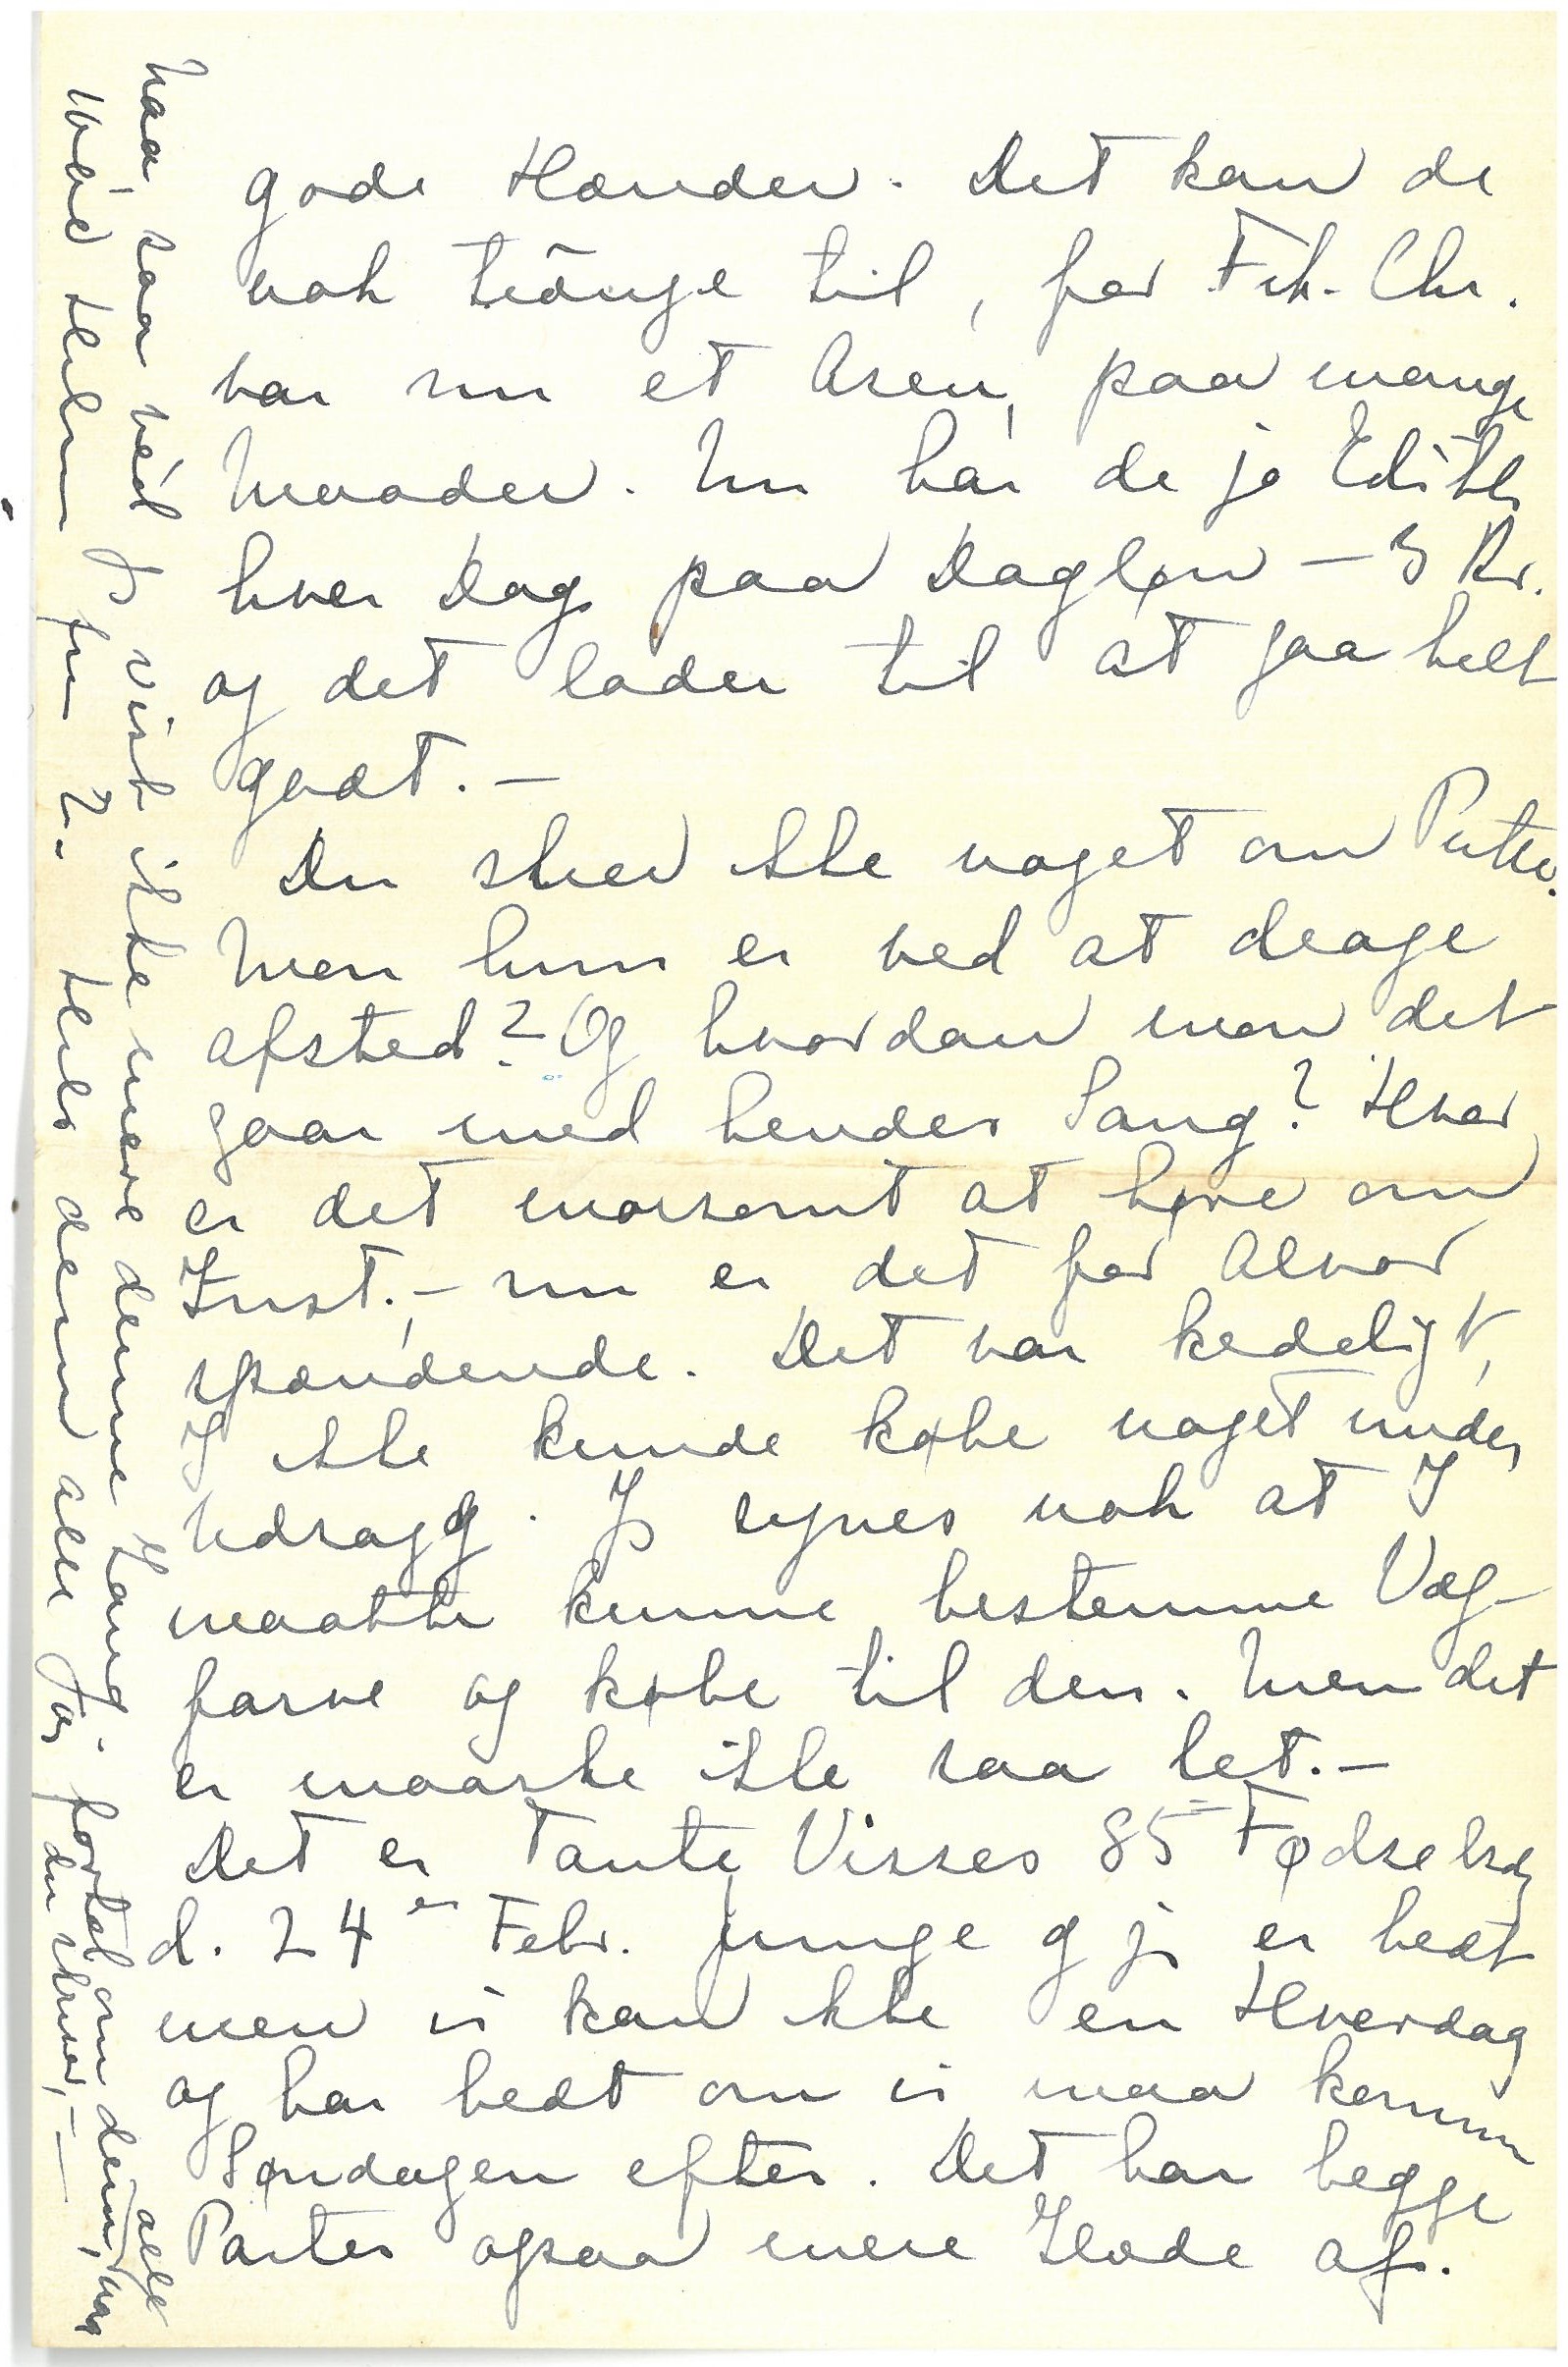 gode Hænder. Det kan de
nok trænge til, for Frk. Chr.
var nu et Asen, paa mange
Maader. Nu har de jo Edith
hver Dag paa Dagløn – 5 Kr.
og det lader til at gaa helt
godt. –
Du skrev ikke noget om Putte.
Mon hun er ved at drage
afsted? Og hvordan mon det
gaar med hendes Sang? Hvor
er det morsomt at høre om
Just. – nu er det for Alvor
spændende. Det var kedeligt,
I ikke kunde købe noget under
Udsalg. Jeg synes nok at I
maatte kunne bestemme Væg-
farve og købe til den. Men det
er maaske ikke saa let. –
Det er Tante Visses 85 Fødselsdag
d. 24 er Febr. Junge og jeg er bedt
men vi kan ikke en Hverdag
og har bedt om vi maa komme
Søndagen efter. Det har begge
Parter ogsaa mere Glæde af.
Naa, saa véd jeg vist ikke mere denne Gang. fortæl om dem, alle
du skriver, –
Hils dem alle fra